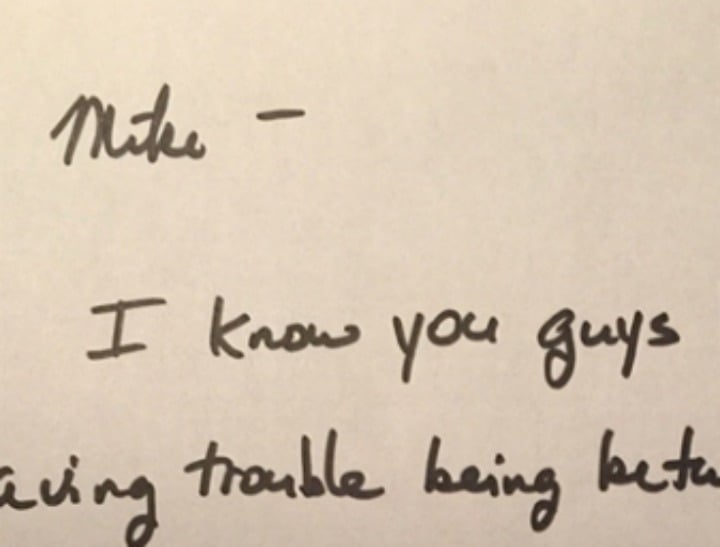 Mike —
I know you guys
aving trouble being betw